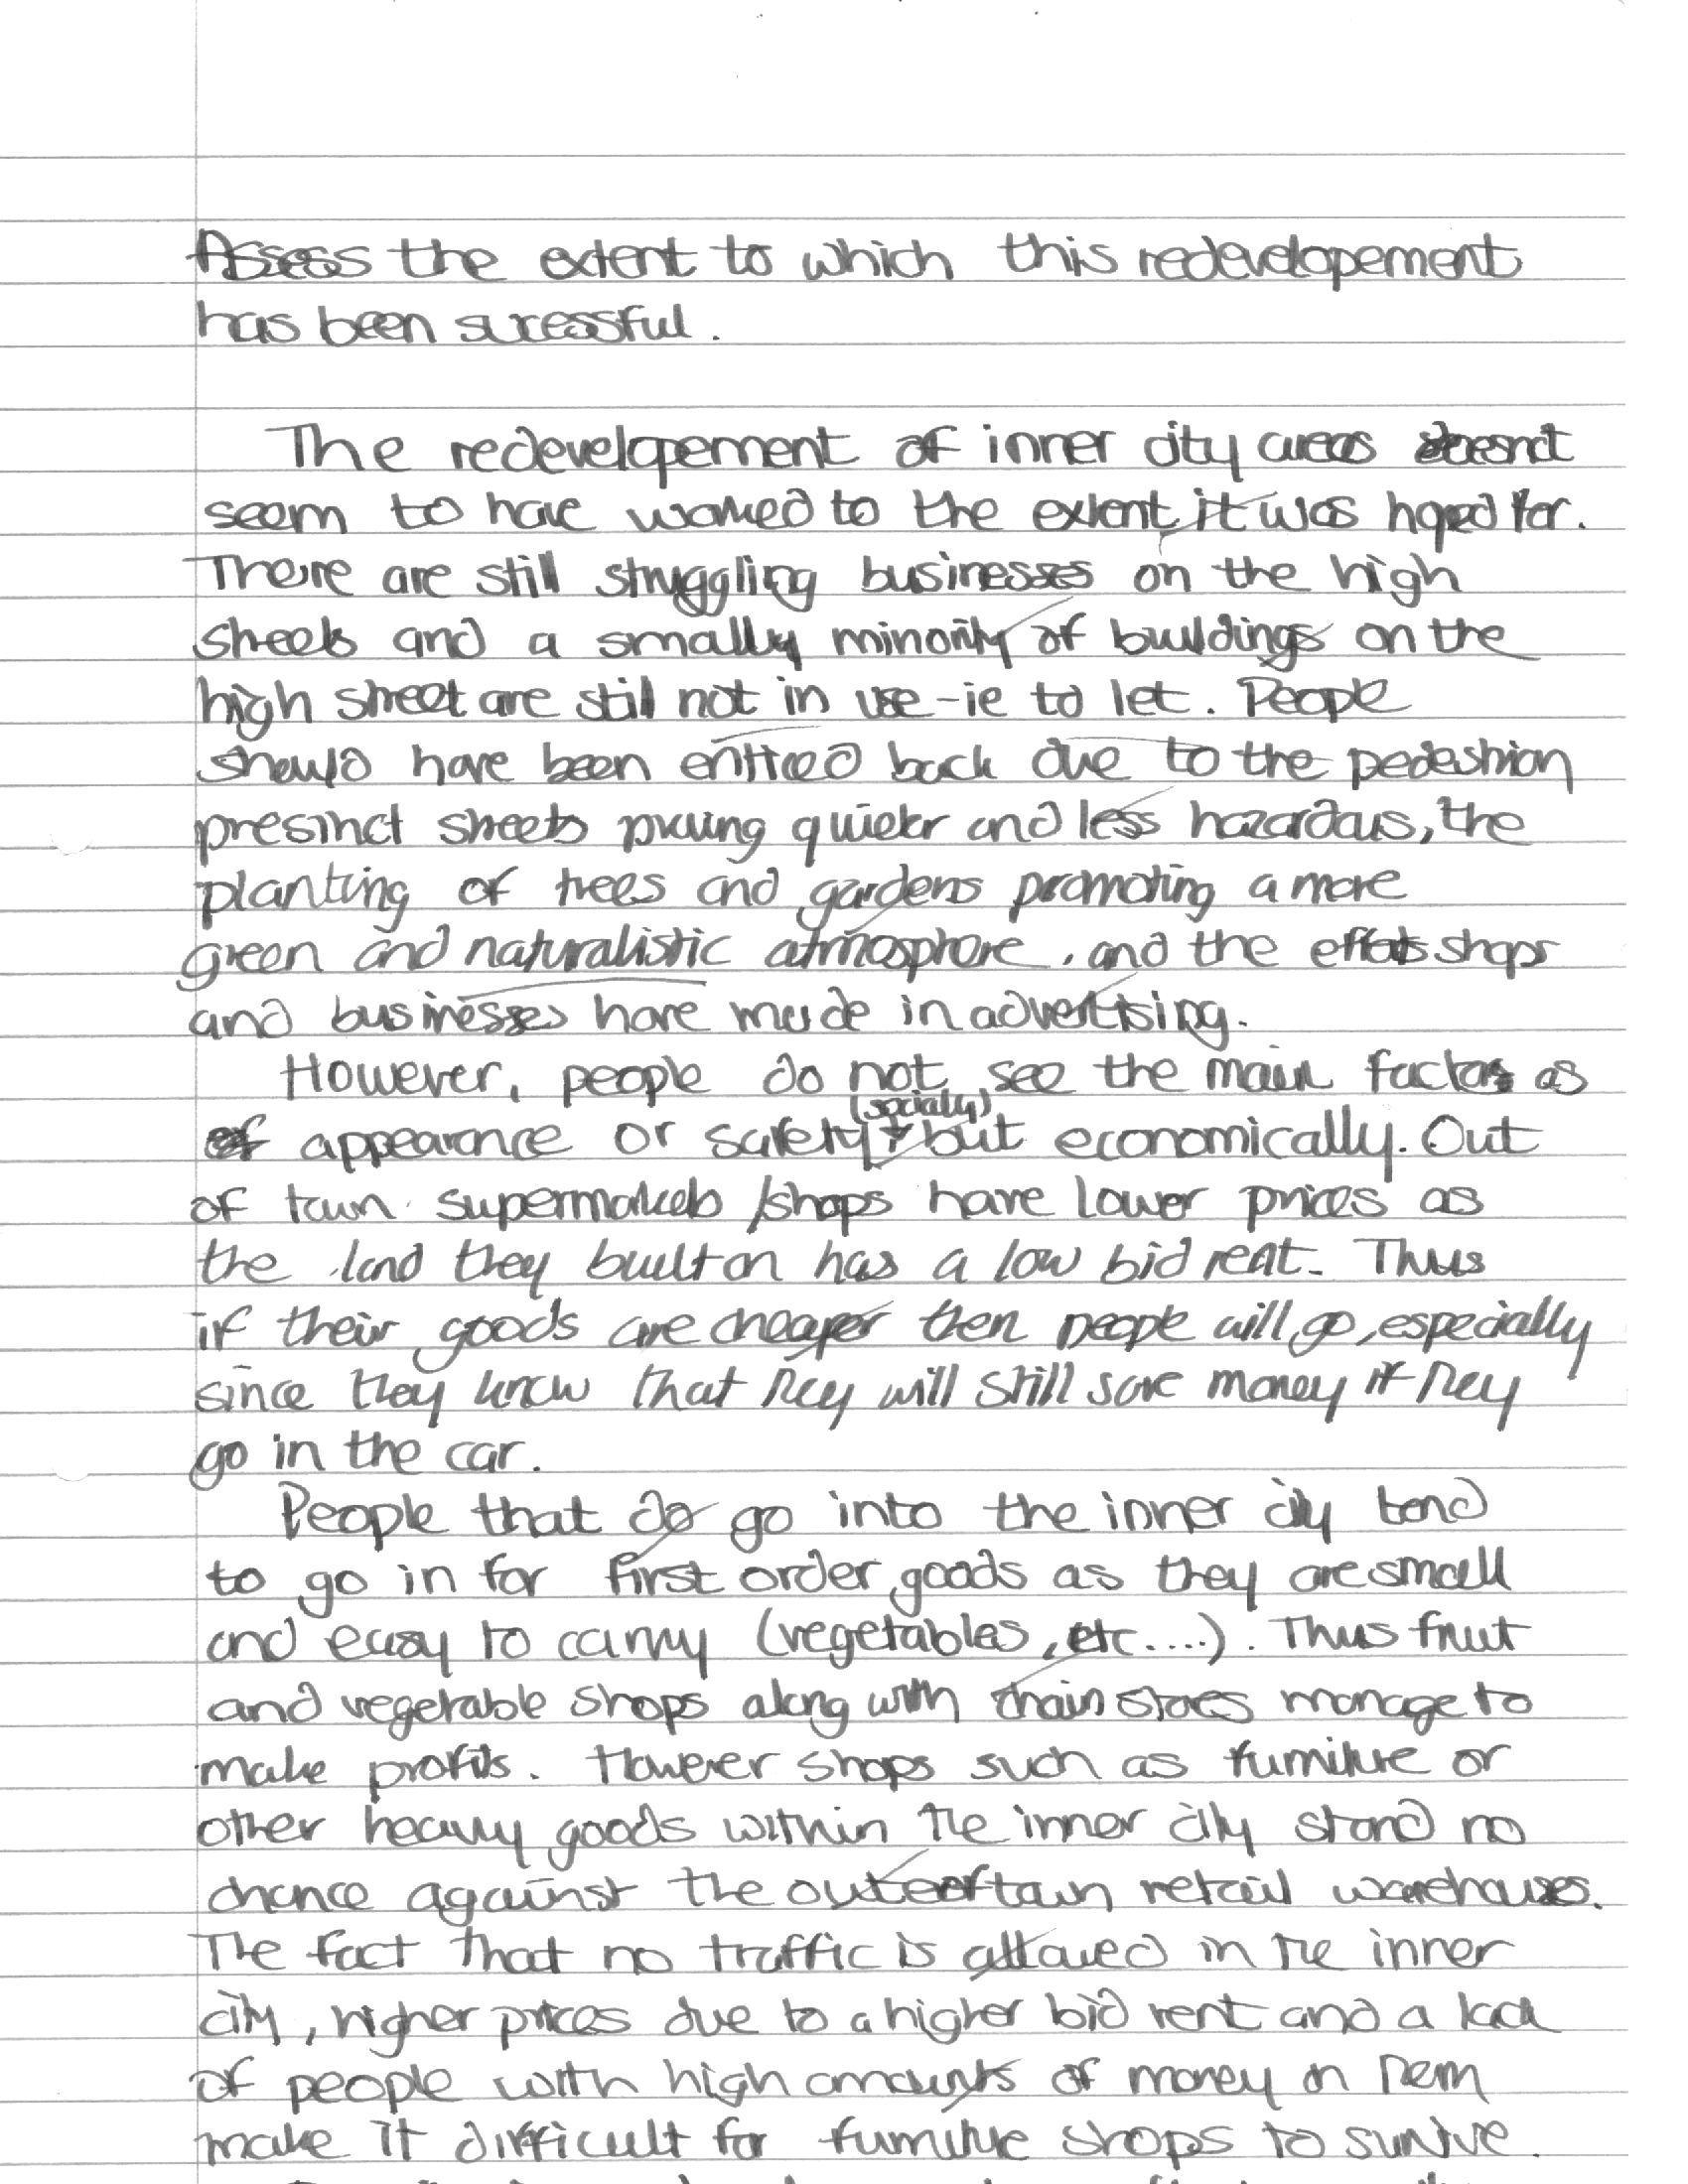 Assess the extent to which this redevelopement
has been sucessful.
The redevelopement of inner city areas doesnt
seem to have worked to the extent it was hoped for.
There are still struggling businesses on the high
streets and a smally minority of buildings on the
high street are still not in use -ie to let. People
should have been entised back due to the pedestrian
presinct streets proving quieter and less hazardous, the
planting of trees and gardens promoting a more
green and naturalistic atmosphere, and the efforts shops
and businesses have made in advertising.
However, people do not see the main factors as
of appearance or safety (socialy) but economically. Out
of town supermarkets /shops have lower prices as
the land they built on has a low bid rent. Thus
if their goods are cheaper then people will go, especially
since they know that they will still save money if they
go in the car.
People that do go into the inner city tend
to go in for first order goods as they are small
and easy to carry (vegetables, etc....). Thus fruit
and vegetable shops along with chain stores manage to
make profits. However shops such as furniture or
other heavy goods within the inner city stand no
chance against the out of town retail warehouses.
The fact that no traffic is allowed in the inner
city, higher prices due to a higher bid rent and a lack
of people with high amounts of money on them
make it difficult for furniture shops to survive.